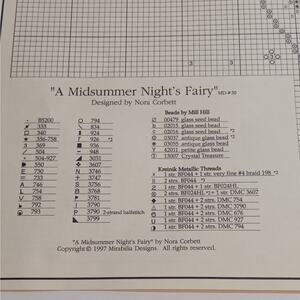 "A Midsummer Night's Fairy" MD-#30
Designed by Nora Corbett
B5200
333
340
356-758 *1
369
504
504-927 *1
550
E 730
N 733
A 746
L 754
V 758
792
793
794
824
924
926 *2
936
948
3031
3607
3746
3747
3756
3768
3781
3790
3790 2-strand ballstitch
3799
Beads by Mill Hill
00479 glass seed bead
02015 glass seed bead
02016 glass seed bead *2
03037 antique glass bead *2
03055 antique glass bead
42011 petite glass bead
13007 Crystal Treasure
Kreinik Metallic Threads
1 str. BF044 + 1 str. very fine #4 braid 198 *2
2 strs. BF044 *2
1 str. BF044 + 1 str. BF024HL
1 str. BF024HL + 1 str. DMC 3607
1 str. BF044 + 2 strs. DMC 754
1 str. BF044 + 2 strs. DMC 3790
1 str. BF044 + 2 strs. DMC 676
1 str. BF044 + 2 strs. DMC 927
1 str. BF044 + 2 strs. DMC 794
"A Midsummer Night's Fairy" by Nora Corbett
Copyright © 1997 Mirabilia Designs. All Rights Reserved.